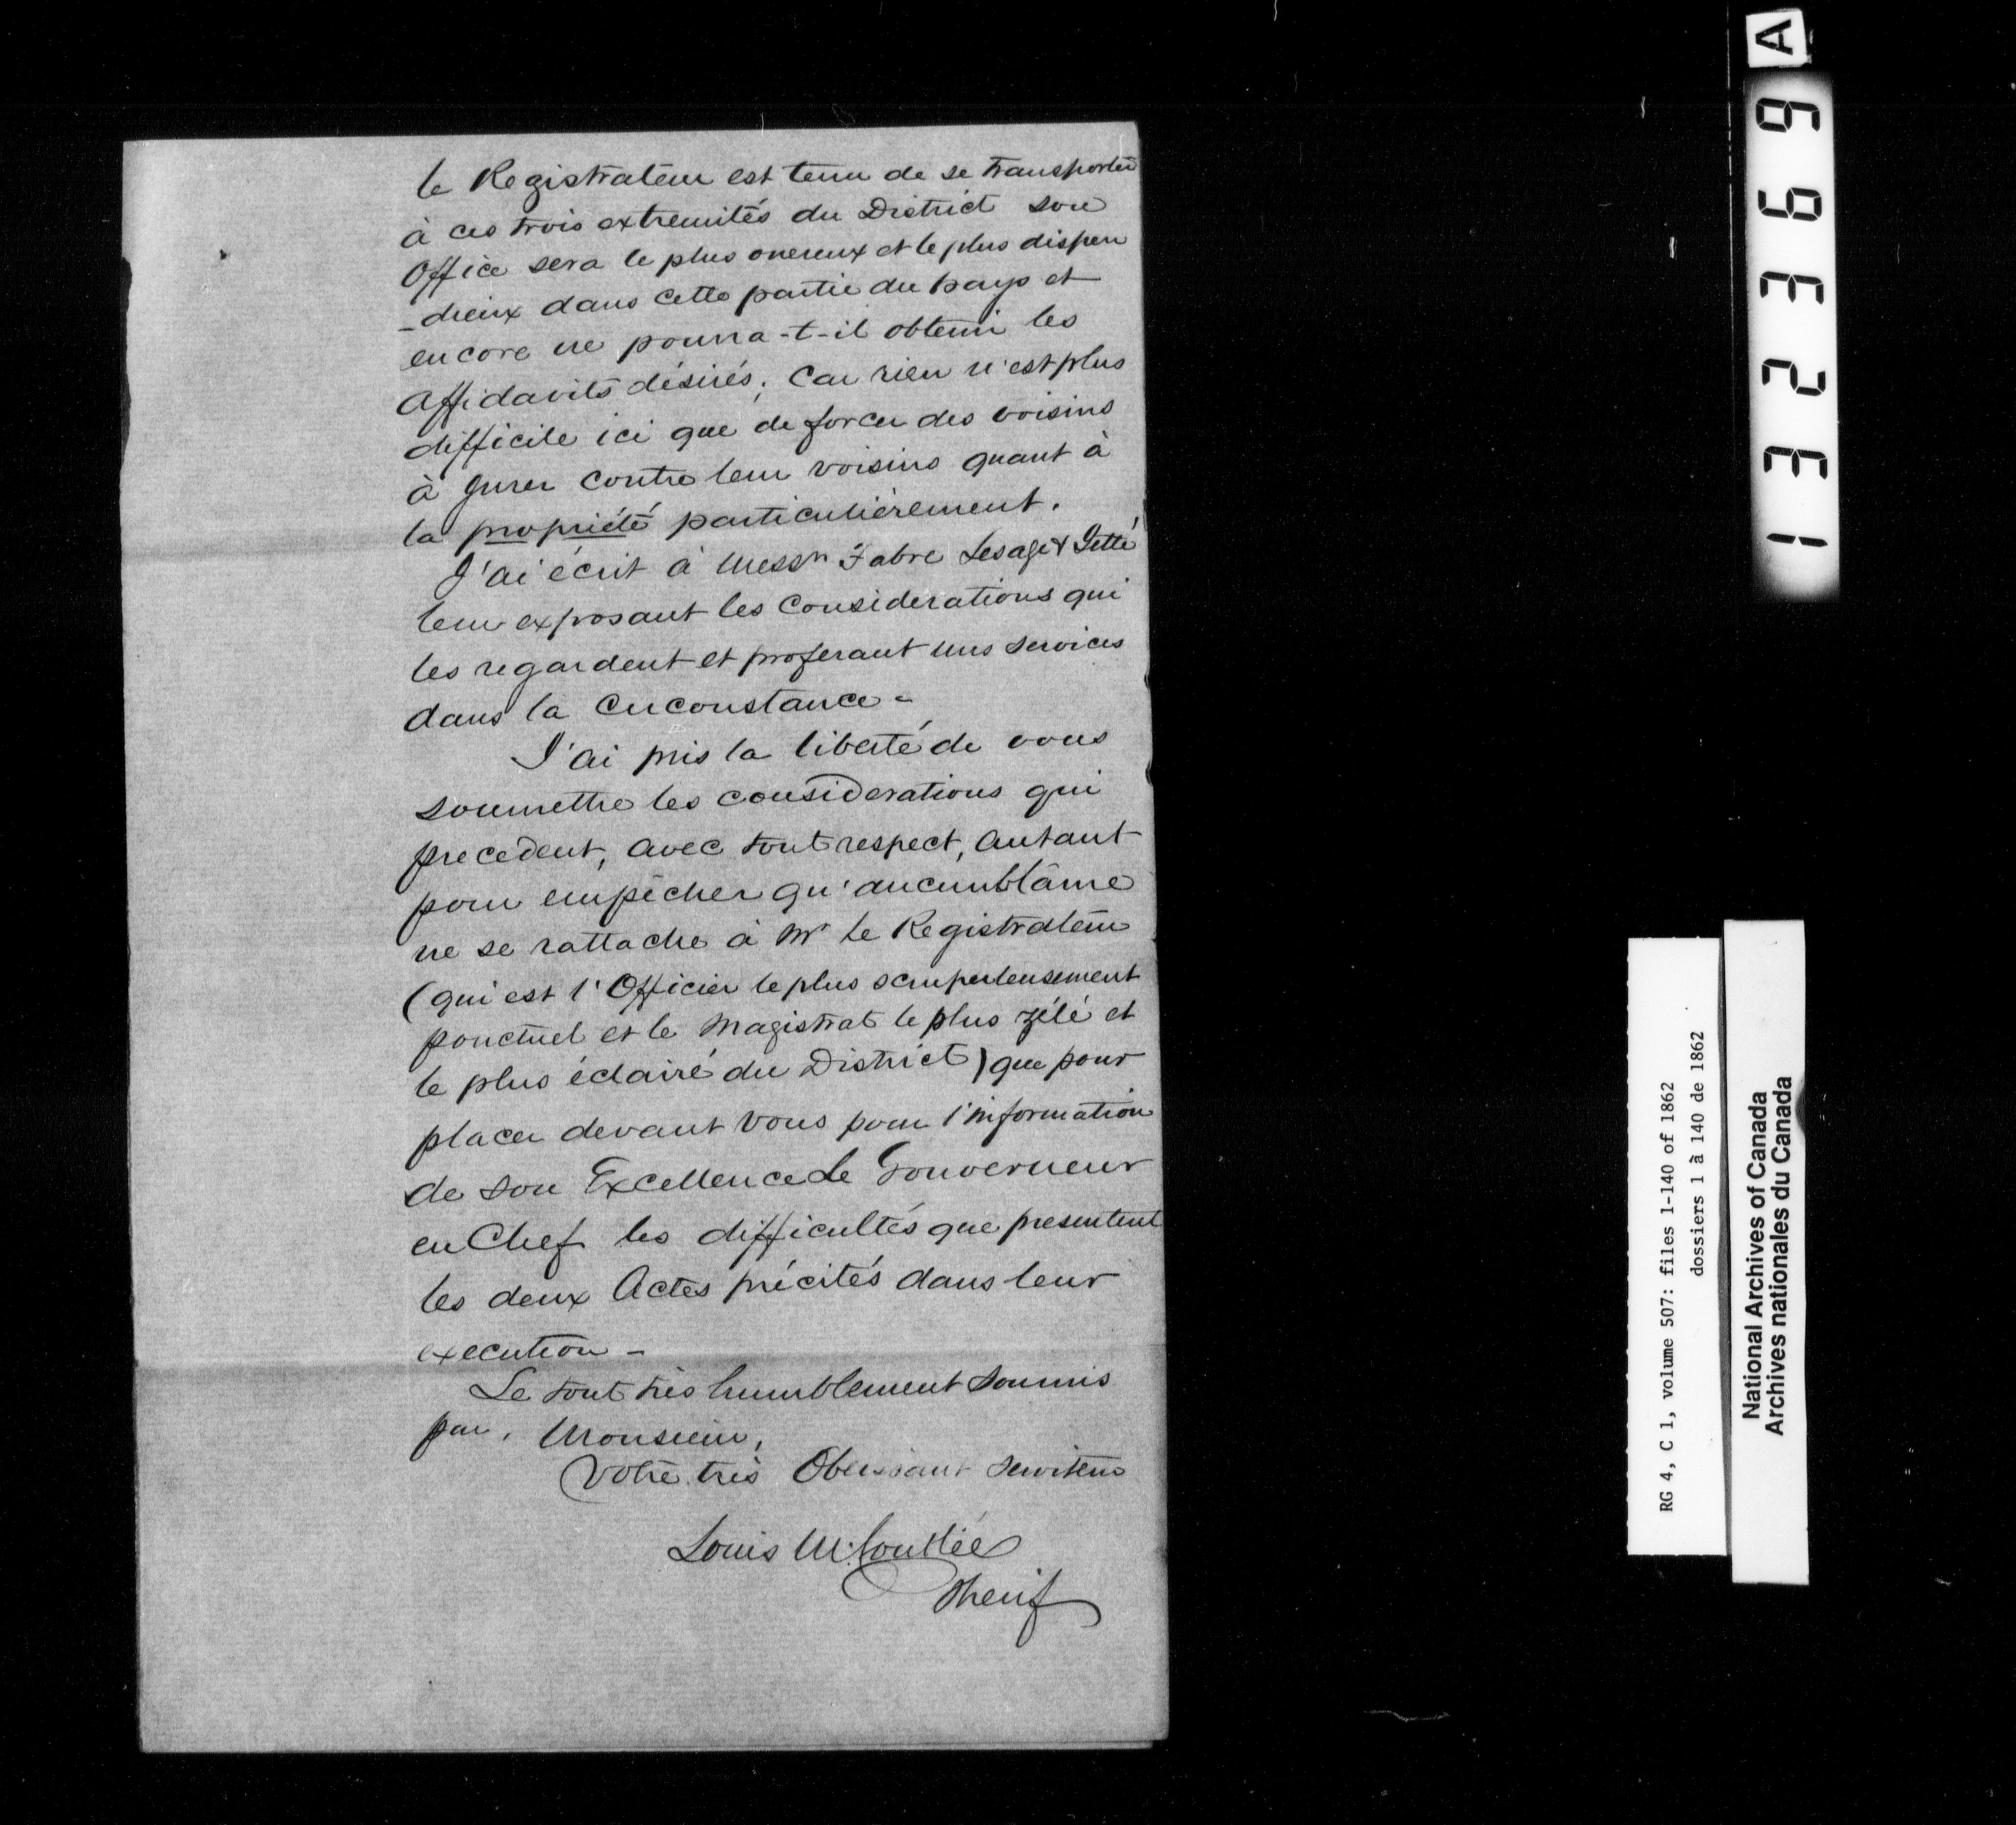 le Registrateur est tenu de se transporter
à ces trois extremités du District son
Office sera le plus onereux et le plus dispen
-dieux dans cette partie du pays et
encore ne pourra-t-il obtenir les
affidavits désirés; Car rien n'est plus
difficile ici que de forcer des voisins
à jurer contre leur voisins quant à
la propriété particulièrement.
J'ai écrit à Messrs Fabre Lesage & Jetté
leur exposant les Considerations qui
les regardent et proferant mes services
dans la Circonstance -
J'ai pris la liberté de vous
soumettre les considerations qui
precedent, avec tout respect, autant
pour empêcher qu'aucun blâme
ne se rattache à Mr le Registrateur
(qui est l'Officier le plus scrupuleusement
ponctuel et le Magistrat le plus zélé et
le plus éclairé du District) que pour
placer devant vous pour l'information
de son Excellence Le Gouverneur
en Chef les difficultés que presentent
les deux Actes précités dans leur
execution -
Le tout très humblement soumis
par, Monsieur,
Votre très Obeissant serviteur
Louis M. Coutlée
Sherif
A
132369
RG 4, C 1, volume 507: files 1-140 of 1862
dossiers 1 à 140 de 1862
National Archives of Canada
Archives nationales du Canada